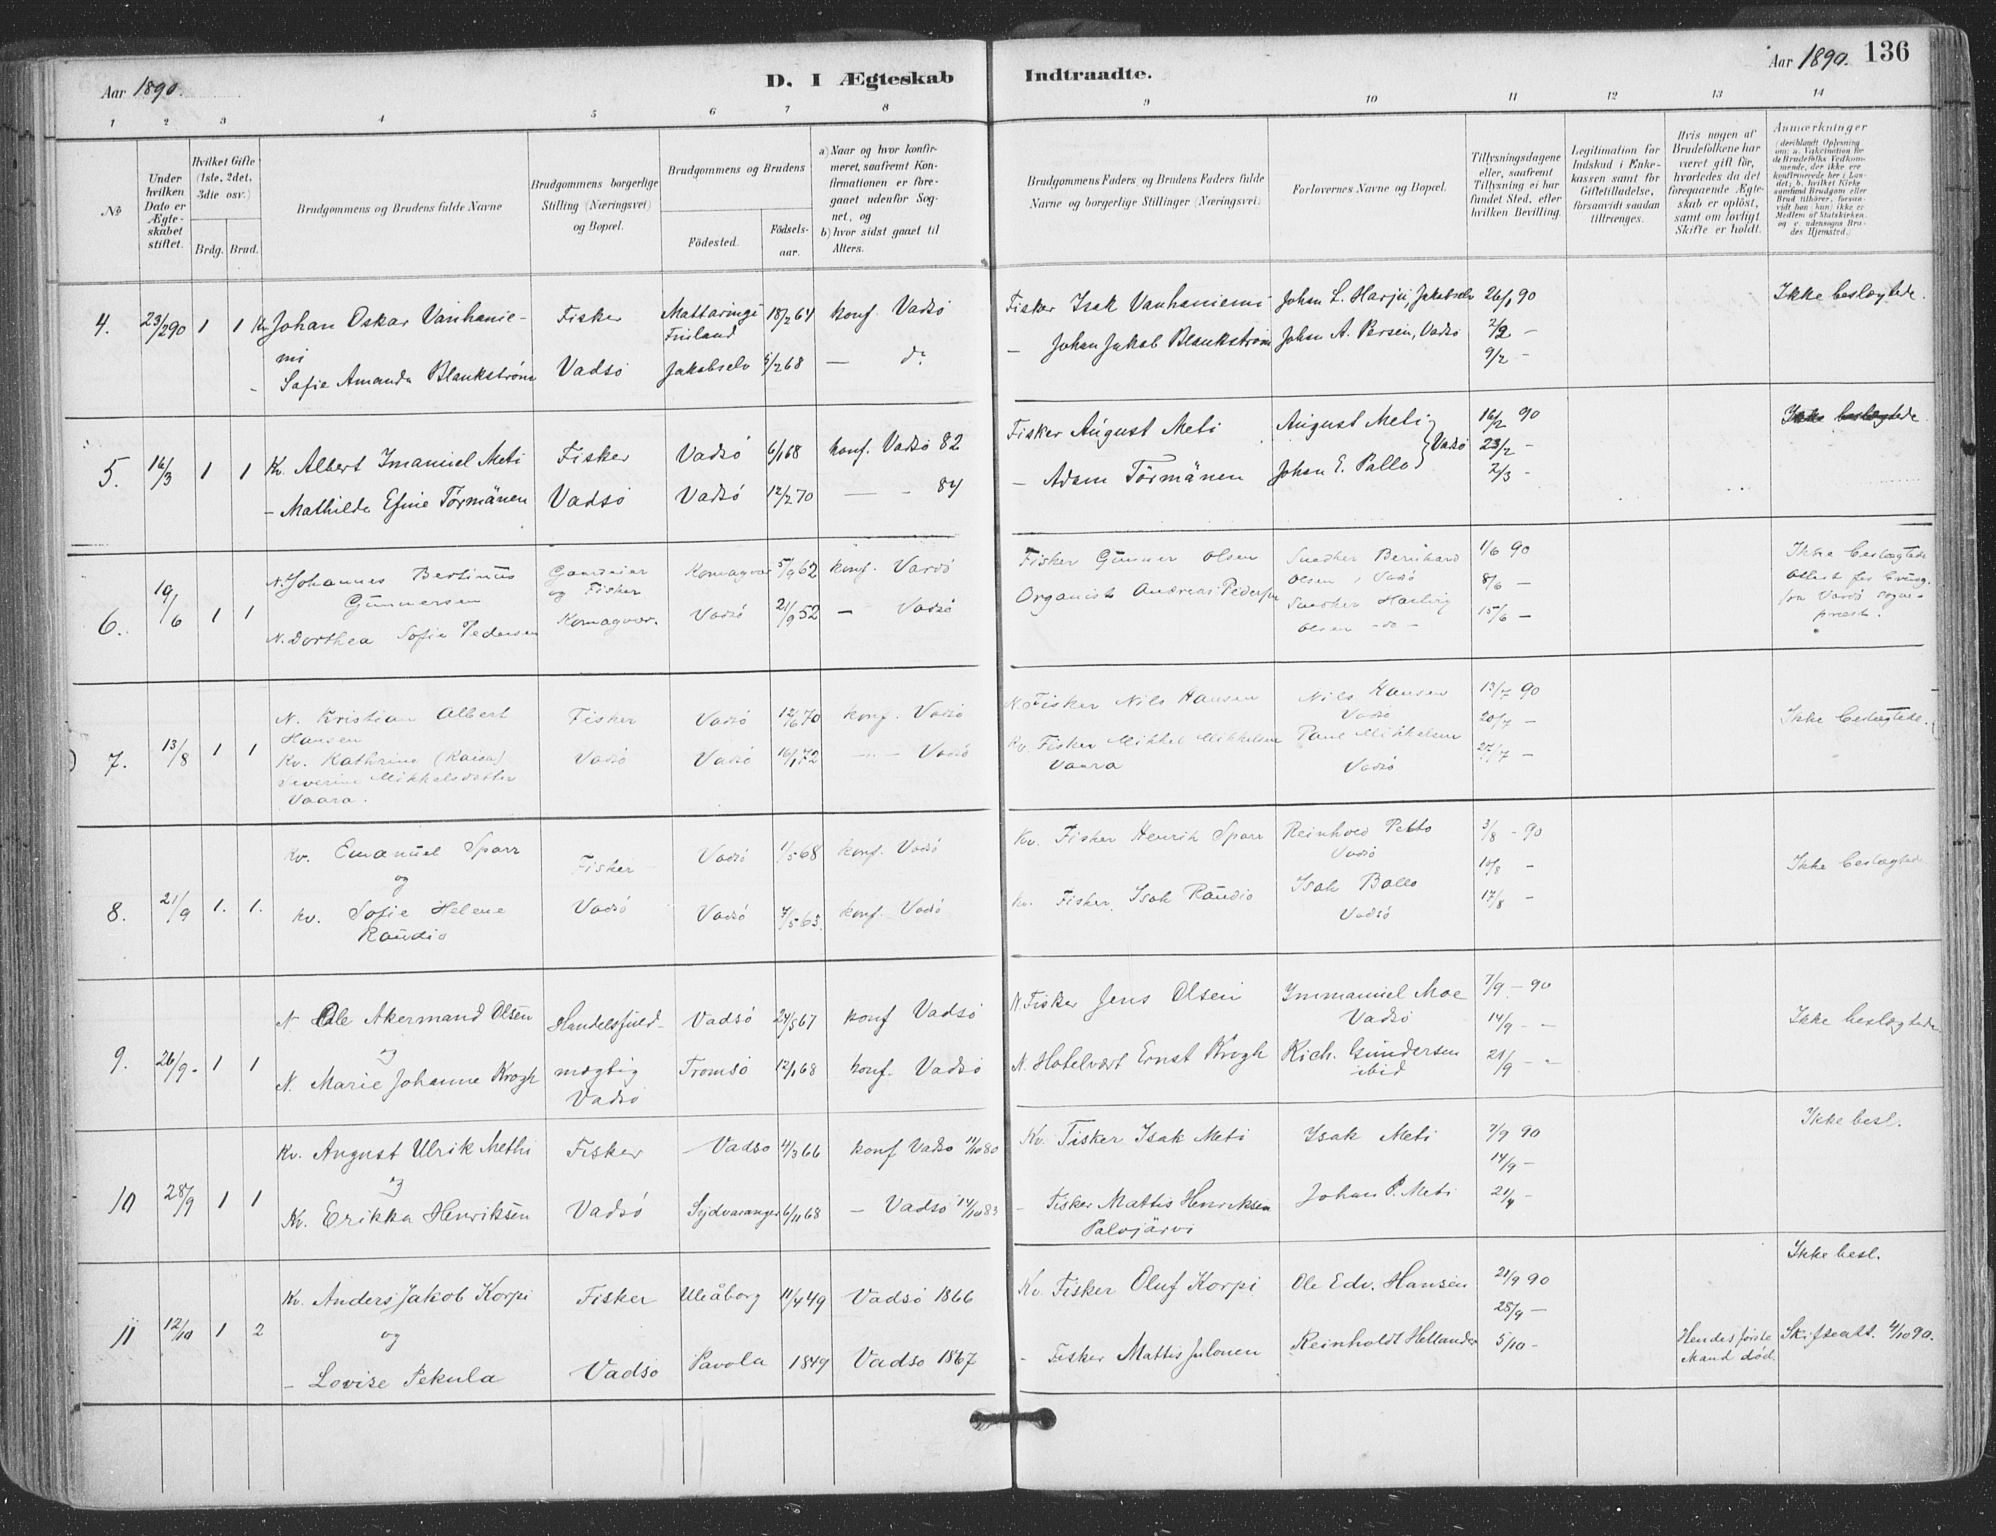 Aar 1890.
D. I Ægteskab Indtraadte.
Aar 1890. 136
1 2 3 4 5 6 7 8 9 10 11 12 13 14
No
Under hvilken Dato er Ægteskabet stiftet.
Hvilket Gifte (1ste, 2det, 3die osv.)
Brdg. Brud.
Brudgommens og Brudens fulde Navne
Brudgommens borgerlige Stilling (Næringsvei) og Bopæl.
Brudgommens og Brudens
Födested. Födsels-aar.
a) Naar og hvor konfirmeret, saafremt Konfirmationen er foregaaet udenfor Sognet, og
b) hvor sidst gaaet til Alters.
Brudgommens Faders og Brudens Faders fulde Navne og borgerlige Stillinger (Næringsvei)
Forlovernes Navne og Bopæl.
Tillysningsdagene eller, saafremt Tillysning ei har fundet Sted, efter hvilken Bevilling.
Legitimation for Indskud i Enkekassen samt for Giftetilladelse, forsaavidt saadan tiltrænges.
Hvis nogen af Brudefolkene har været gift för, hvorledes da det foregaaende Ægteskab er oplöst, samt om lovligt Skifte er holdt.
Anmærkninger
(deriblandt Oplysning om: a. Vakcination for de Brudefolks Vedkommende, der ikke ere konfirmerede her i Landet; b. hvilket Kirkesamfund Brudgom eller Brud tilhörer, forsaavidt han (hun) ikke er Medlem af Statskirken, og c. udensogns Brudes Hjemsted.)
4. 23/2 90 1 1 Kv Johan Oskar Vanhanie- Fisker Mattaringi 18/2 64 konf. Vadsö Fisker Isak Vanhaniemi Johan L. Harju, Jakobselv 26/1 90 Ikke beslægtede.
mi Finland 2/2 –
- Sofie Amanda Blankström Vadsö Jakobselv 5/2 68 — do – Johan Jakob Blankström Johan A. Persen, Vadsö 9/2 –
5. 16/3 1 1 Kv. Albert Imanuel Meti Fisker Vadsö 6/1 68 konf. Vadsö 82 Fisker August Meti August Meti } Vadsö 16/2 90 Ikke beslægtede
23/2 –
– Mathilde Efine Törmänen Vadsö Vadsö 12/2 70 — – 84 – Adam Törmänen Johan E. Pallo 2/3 –
6. 19/6 1 1 N. Johannes Bertinus Gunnersen og Fisker Komagvær 5/9 62 konf. Vardö Fisker Gunner Olsen Snedker Bernhard Olsen, Vadsö 1/6 90 Ikke beslægtede
8/6 –
N. Dorthea Sofie Pedersen Komagvær. Vadsö 21/9 52 — Vadsö Organist Andreas Pedersen Snedker Hartvig Olsen -do- 15/6 –
Attest for
fra Vardö Sogne-
præst.
7. 13/8 1 1 N. Kristian Albert Hansen Fisker Vadsö 12/6 70 konf. Vadsö N. Fisker Nils Hansen Nils Hansen Vadsö 13/7 90 Ikke beslægtede.
20/7 –
Kv. Kathrine (Kaisa) Severine Mikkelsdatter Vaara. Vadsö Vadsö 16/1 72 — Vadsö Kv. Fisker Mikkel Mikkelsen Vaara Paul Mikkelsen Vadsö 27/7 –
8. 21/9 1. 1. Kv. Emanuel Sparr Fisker Vadsö 1/5 68 konf. Vadsö Kv. Fisker Henrik Sparr Reinhold Petto Vadsö 3/8 – 90 Ikke beslægtede
og 10/8 –
Kv. Sofie Helene Raudio Vadsö Vadsö 7/5 63. konf. Vadsö Kv. Fisker Isak Raudio Isak Ballo Vadsö 17/8 –
9. 26/9. 1 1 N Ole Akermand Olsen Handelsfuld- Vadsö 24/5 67 konf Vadsö N Fisker Jens Olsen Immanuel Moe Vadsö 7/9 – 90 Ikke beslægtede
og 14/9 – –
N. Marie Johanne Krogh mægtig Vadsö Tromsö 12/1 68 konf. Vadsö N. Hotelvært Ernst Krogh Rich. Gundersen ibid 21/9 – –
10 28/9 1 1 Kv. August Ulrik Methi Fisker Vadsö 4/3 66 konf Vadsö 80 Kv. Fisker Isak Meti Isak Meti 7/9 90 Ikke besl.
og 14/9 –
Kv. Erikka Henriksen Vadsö Sydvaranger 6/11 68 – Vadsö 14/10 83 – Fisker Mattis Henriksen Palojärvi Johan P. Meti 21/9 –
11 12/10 1 2 Kv. Anders Jakob Korpi Fisker Uleåborg 11/4 49 Vadsö 1866 Kv. Fisker Oluf Korpi Ole Edv. Hansen 21/9 90 Ikke besl.
og 28/9 –
– Lovise Pekula Vadsö Pavola 1849 Vadsö 1867 – Fisker Mattis Julonen Reinholdt Hellander 5/10 – Hendes förste Mand död. Skifteatt. 4/10 90.